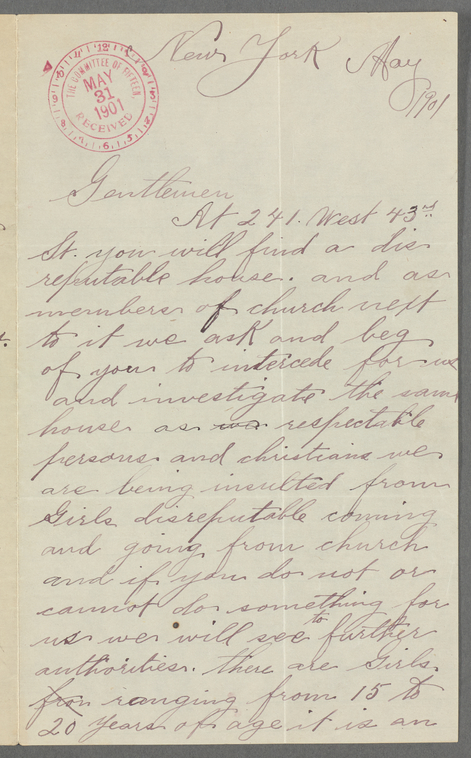 THE COMMITTEE OF FIFTEEN.
MAY
31
1901
RECEIVED
New York May
1901
Gentlemen
At 241. West 43rd
St. you will find a dis
reputable house. and as
members of church next
to it we ask and beg
of you to intercede for us
and investigate the same
house as we respectable
persons and christians we
are being insulted from
Girls disreputable coming
and going from church
and if you do not or
cannot do something for
us we will see to further
authorities. there are Girls
from ranging from 15 to
20 years of age it is an